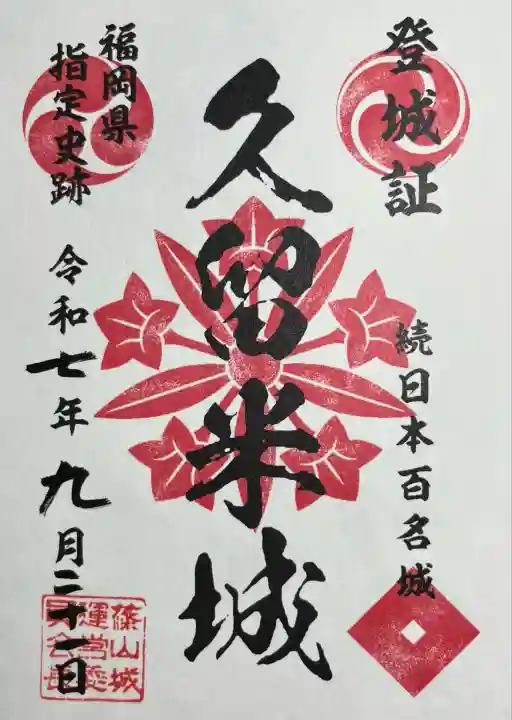 登城証
続日本百名城
久留米城
福岡県
指定史跡
令和七年九月二十一日
篠山城
運営委
員会長